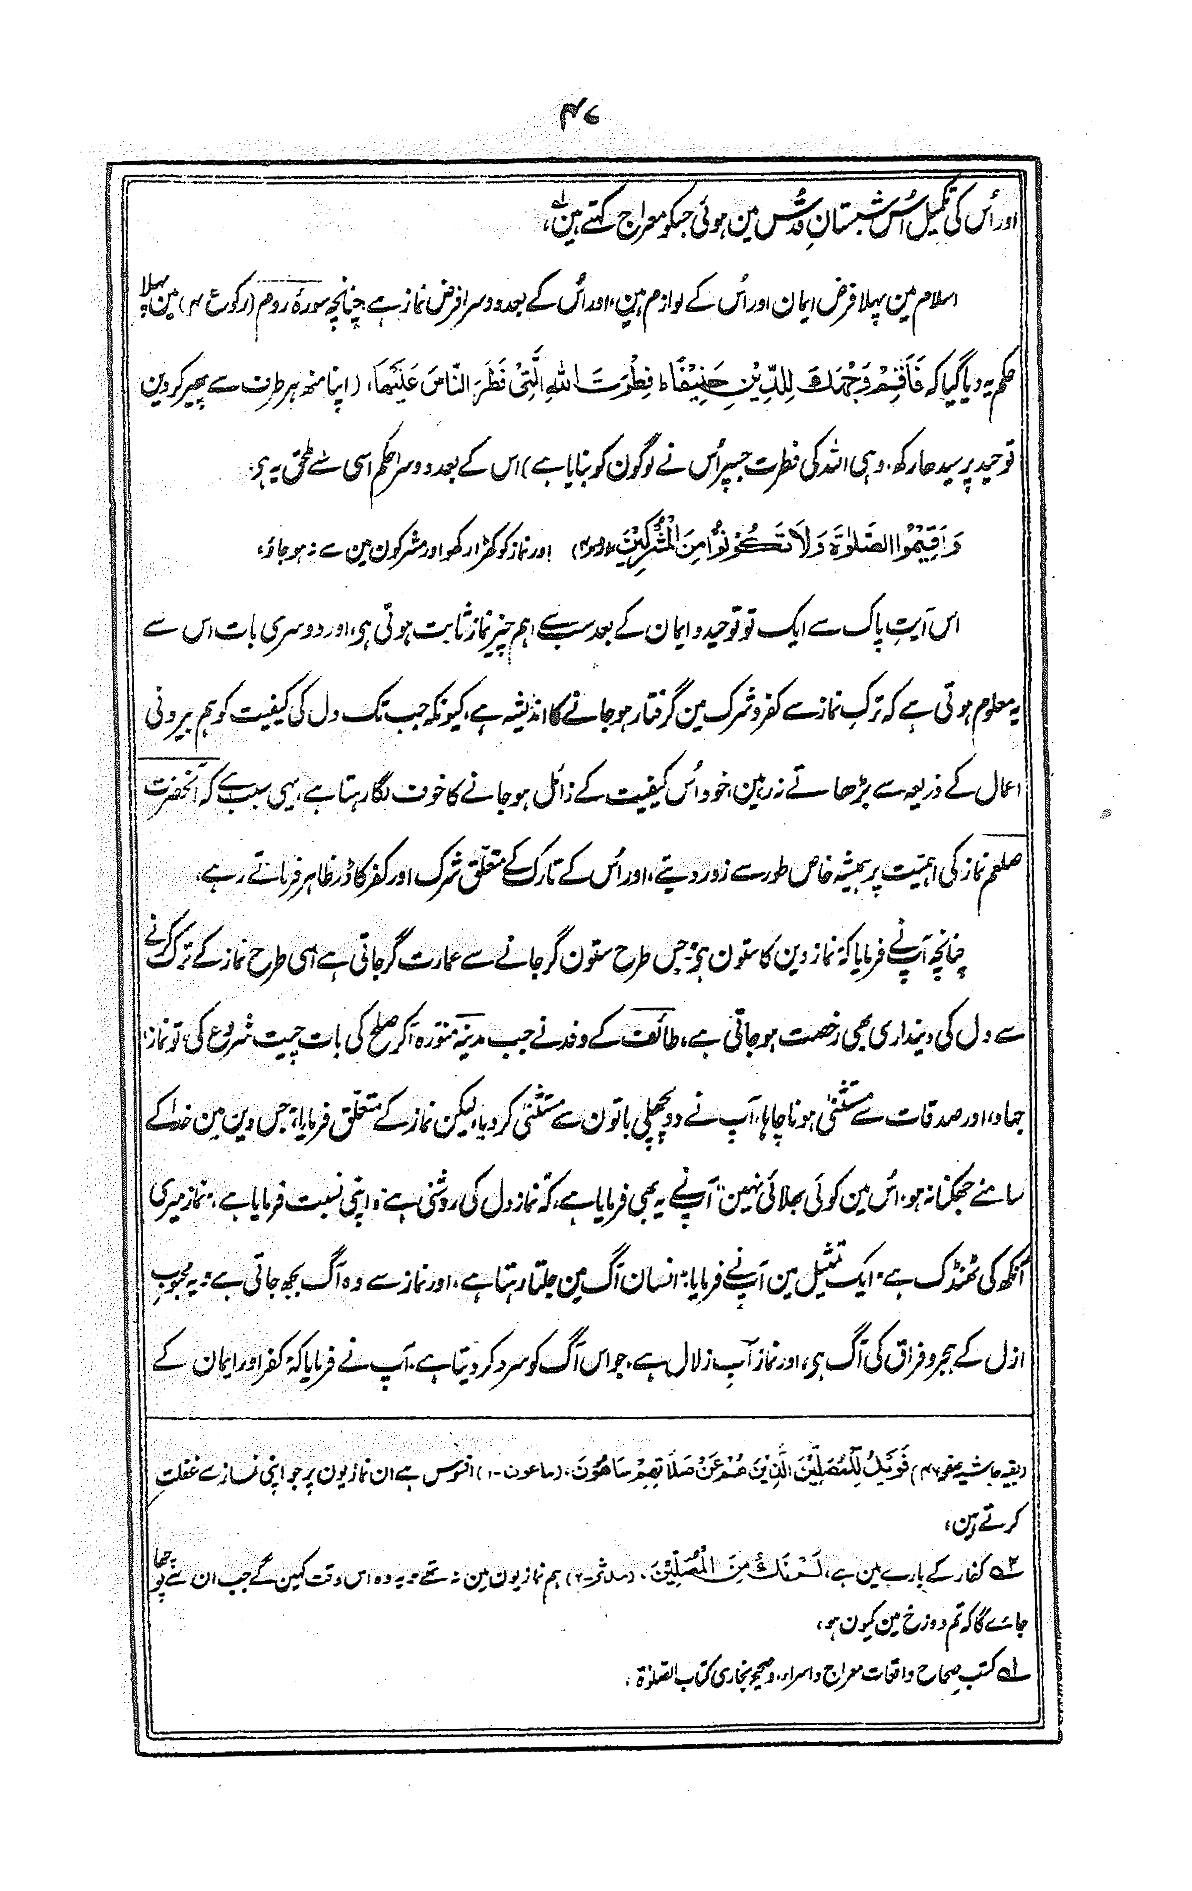 ۴۷
اور اُس کی تکمیل اُس شبستانِ قدس مین ہوئی جسکو معراج کہتے ہین۱؎،
اسلام مین پہلا فرض ایمان اور اُس کے لوازم ہین، اور اُس کے بعد دوسرا فرض نماز ہے، چنانچہ سورۂ روم (رکوع ۴) مین پہلا
حکم یہ دیا گیا کہ فَاَقِمْ وَجْهَكَ لِلدِّيْنِ حَنِيْفًا ط فِطْرَتَ اللهِ الَّتِيْ فَطَرَ النَّاسَ عَلَيْهَا، (اپنا منھ ہر طرف سے پھیر کر دین
توحید پر سیدھا رکھ، وہی اللہ کی فطرت جسپر اُس نے لوگون کو بنایا ہے) اس کے بعد دوسرا حکم اسی سے ملحق یہ ہی،
وَاَقِيْمُوا الصَّلٰوةَ وَلَا تَكُوْنُوْا مِنَ الْمُشْرِكِيْنَ (روم ۴) اور نماز کو کھڑا رکھو اور مشرکون مین سے نہ ہو جاؤ،
اس آیتِ پاک سے ایک تو توحید و ایمان کے بعد سب سے اہم چیز نماز ثابت ہوتی ہی، اور دوسری بات اس سے
یہ معلوم ہوتی ہے کہ ترکِ نماز سے کفر و شرک مین گرفتار ہو جانے کا اندیشہ ہے، کیونکہ جب تک دل کی کیفیت کو ہم بیرونی
اعمال کے ذریعہ سے بڑھاتے نہ رہین، خود اُس کیفیت کے زائل ہو جانے کا خوف لگا رہتا ہے، یہی سبب ہے کہ آنحضرت
صلعم نماز کی اہمیت پر ہمیشہ خاص طور سے زور دیتے، اور اُس کے تارک کے متعلق شرک اور کفر کا ڈر ظاہر فرماتے رہے،
چنانچہ آپ نے فرمایا کہ نماز دین کا ستون ہی، جس طرح ستون گر جانے سے عمارت گر جاتی ہے اسی طرح نماز کے ترک کرنے
سے دل کی دینداری بھی رخصت ہو جاتی ہے، طائف کے وفد نے جب مدینہ منورہ آکر صلح کی بات چیت شروع کی، تو نماز،
جہاد، اور صدقات سے مستثنٰی ہونا چاہا، آپ نے دو پچھلی باتون سے مستثنٰی کر دیا، لیکن نماز کے متعلق فرمایا، "جس دین مین خدا کے
سامنے جھکنا نہ ہو، اُس مین کوئی بھلائی نہین" آپ نے یہ بھی فرمایا ہے، کہ "نماز دل کی روشنی ہے"، اپنی نسبت فرمایا ہے، "نماز میری
آنکھ کی ٹھنڈک ہے" ایک تمثیل مین آپ نے فرمایا، "انسان آگ مین جلتا رہتا ہے، اور نماز سے وہ آگ بجھ جاتی ہے" یہ محبوبِ
ازل کے ہجر و فراق کی آگ ہی، اور نماز آبِ زلال ہے، جو اس آگ کو سرد کر دیتا ہے، آپ نے فرمایا کہ "کفر اور ایمان کے
(بقیہ حاشیہ صفحہ ۴۶) فَوَيْلٌ لِّلْمُصَلِّيْنَ الَّذِيْنَ هُمْ عَنْ صَلَاتِهِمْ سَاهُوْنَ، (ماعون-۱) افسوس ہے ان نمازیون پر جو اپنی نماز سے غفلت
کرتے ہین،
۲؎ کفار کے بارے مین ہے، لَمْ نَكُ مِنَ الْمُصَلِّيْنَ، (مدثر-۲) ہم نمازیون مین نہ تھے، یہ وہ اس وقت کہین گے جب ان سے پوچھا
جائے گا کہ تم دوزخ مین کیون ہو،
۱؎ کتب صحاح واقعات معراج و اسراء، و صحیح بخاری کتاب الصلوٰۃ،